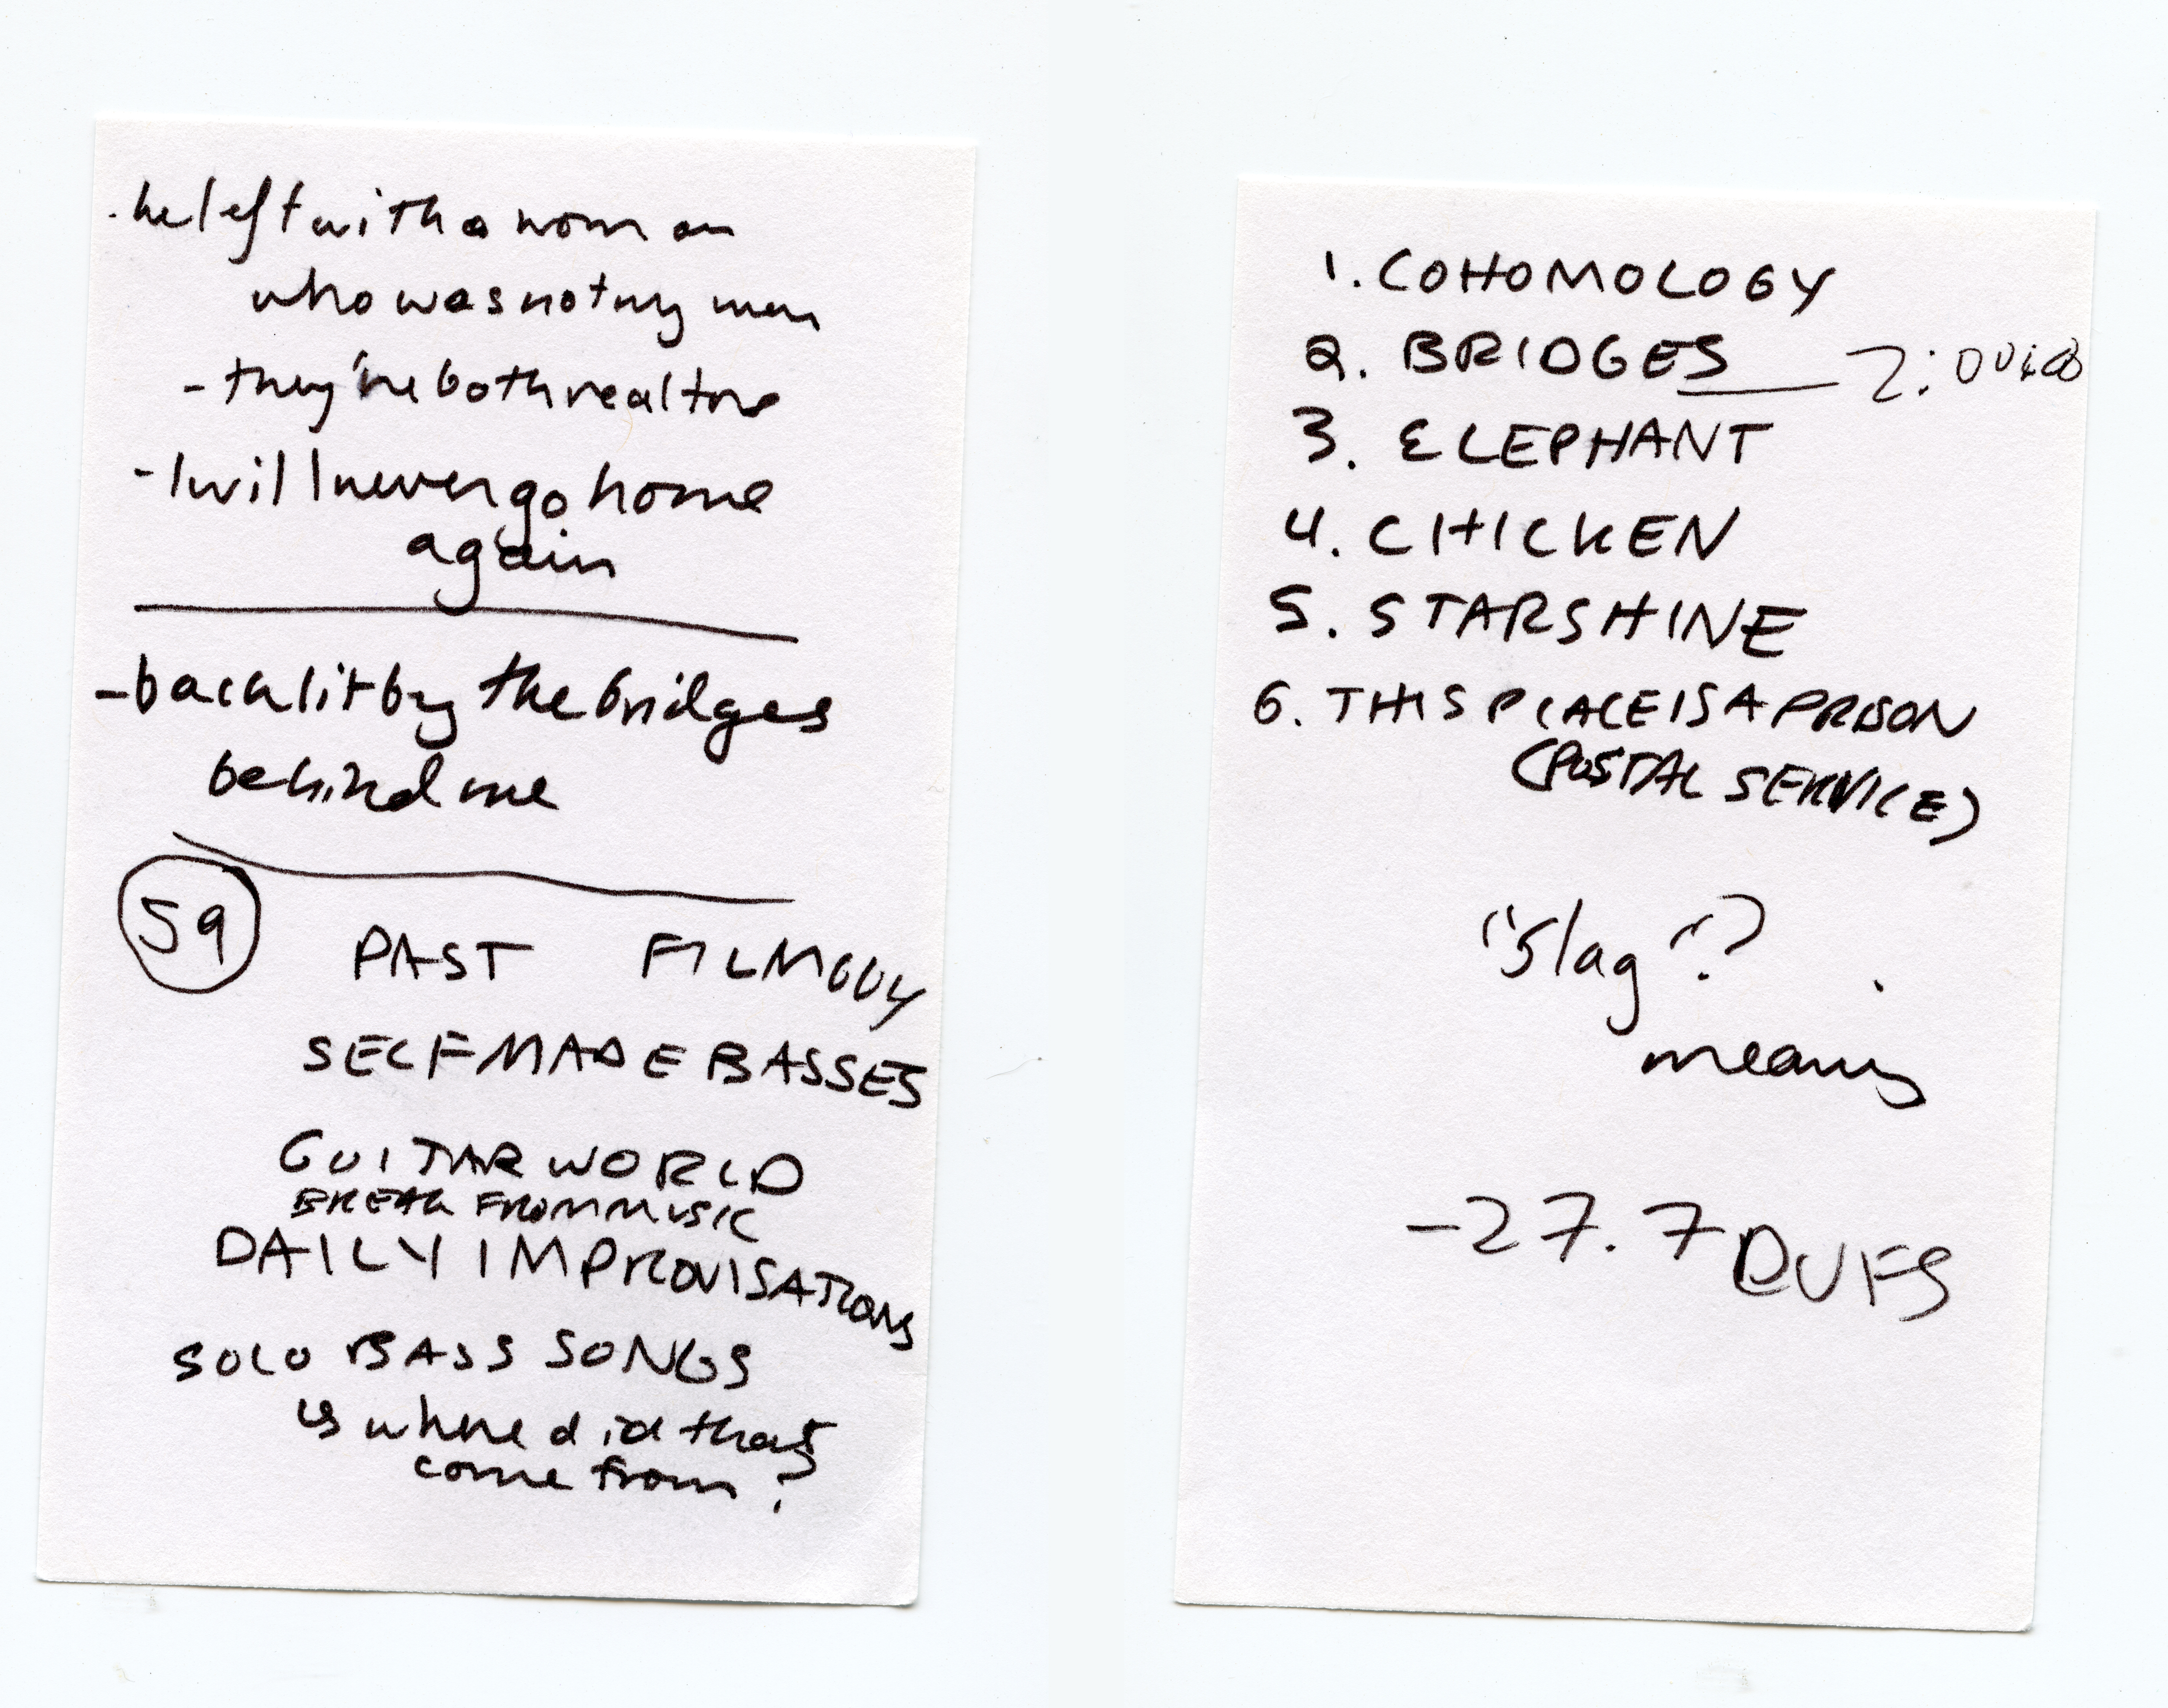 . he left with a woman
who was not my mom
- they're both realtors
- I will never go home
again
- backlit by the bridges
behind me
59
PAST FILM GUY
SELF MADE BASSES
GUITAR WORLD
BREAK FROM MUSIC
DAILY IMPROVISATIONS
SOLO BASS SONGS
is where did that
come from?
1. COHOMOLOGY
2. BRIDGES
3. ELEPHANT
4. CHICKEN
5. STARSHINE
6. THIS PLACE IS A PRISON
(POSTAL SERVICE)
"Slag"?
means
-27.7